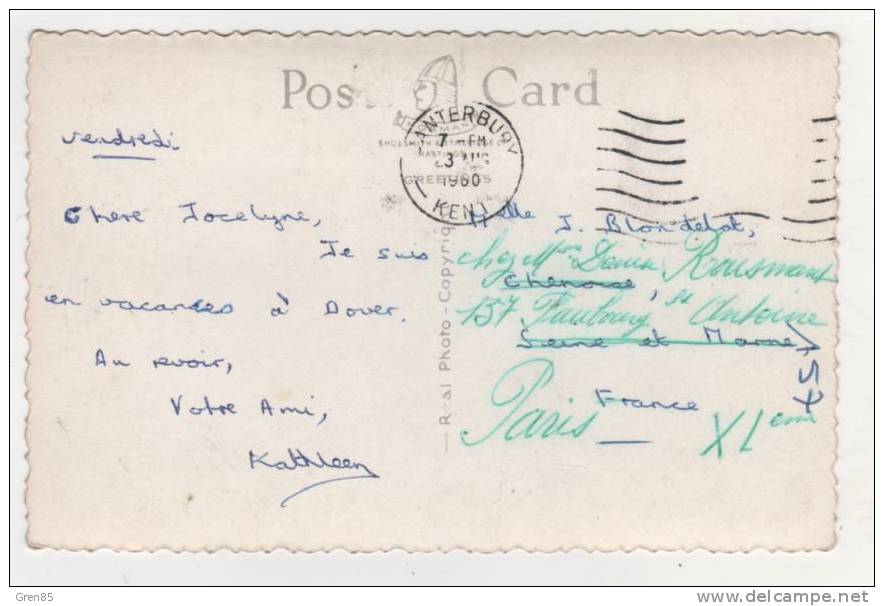 Post Card
CANTERBURY
7 - PM
1960
KENT
GREETINGS
HASTINGS
Real Photo - Copyright
vendredi
Chere Jocelyne,
Je suis
en vacances à Dover.
Au revoir,
Votre Ami,
Kathleen
Melle J. Blondelot,
chez Mme Denise
Chenoise,
157 Faubourg St Antoine
Seine et Marne,
France
Paris XIeme
Gren85
delcampe.net